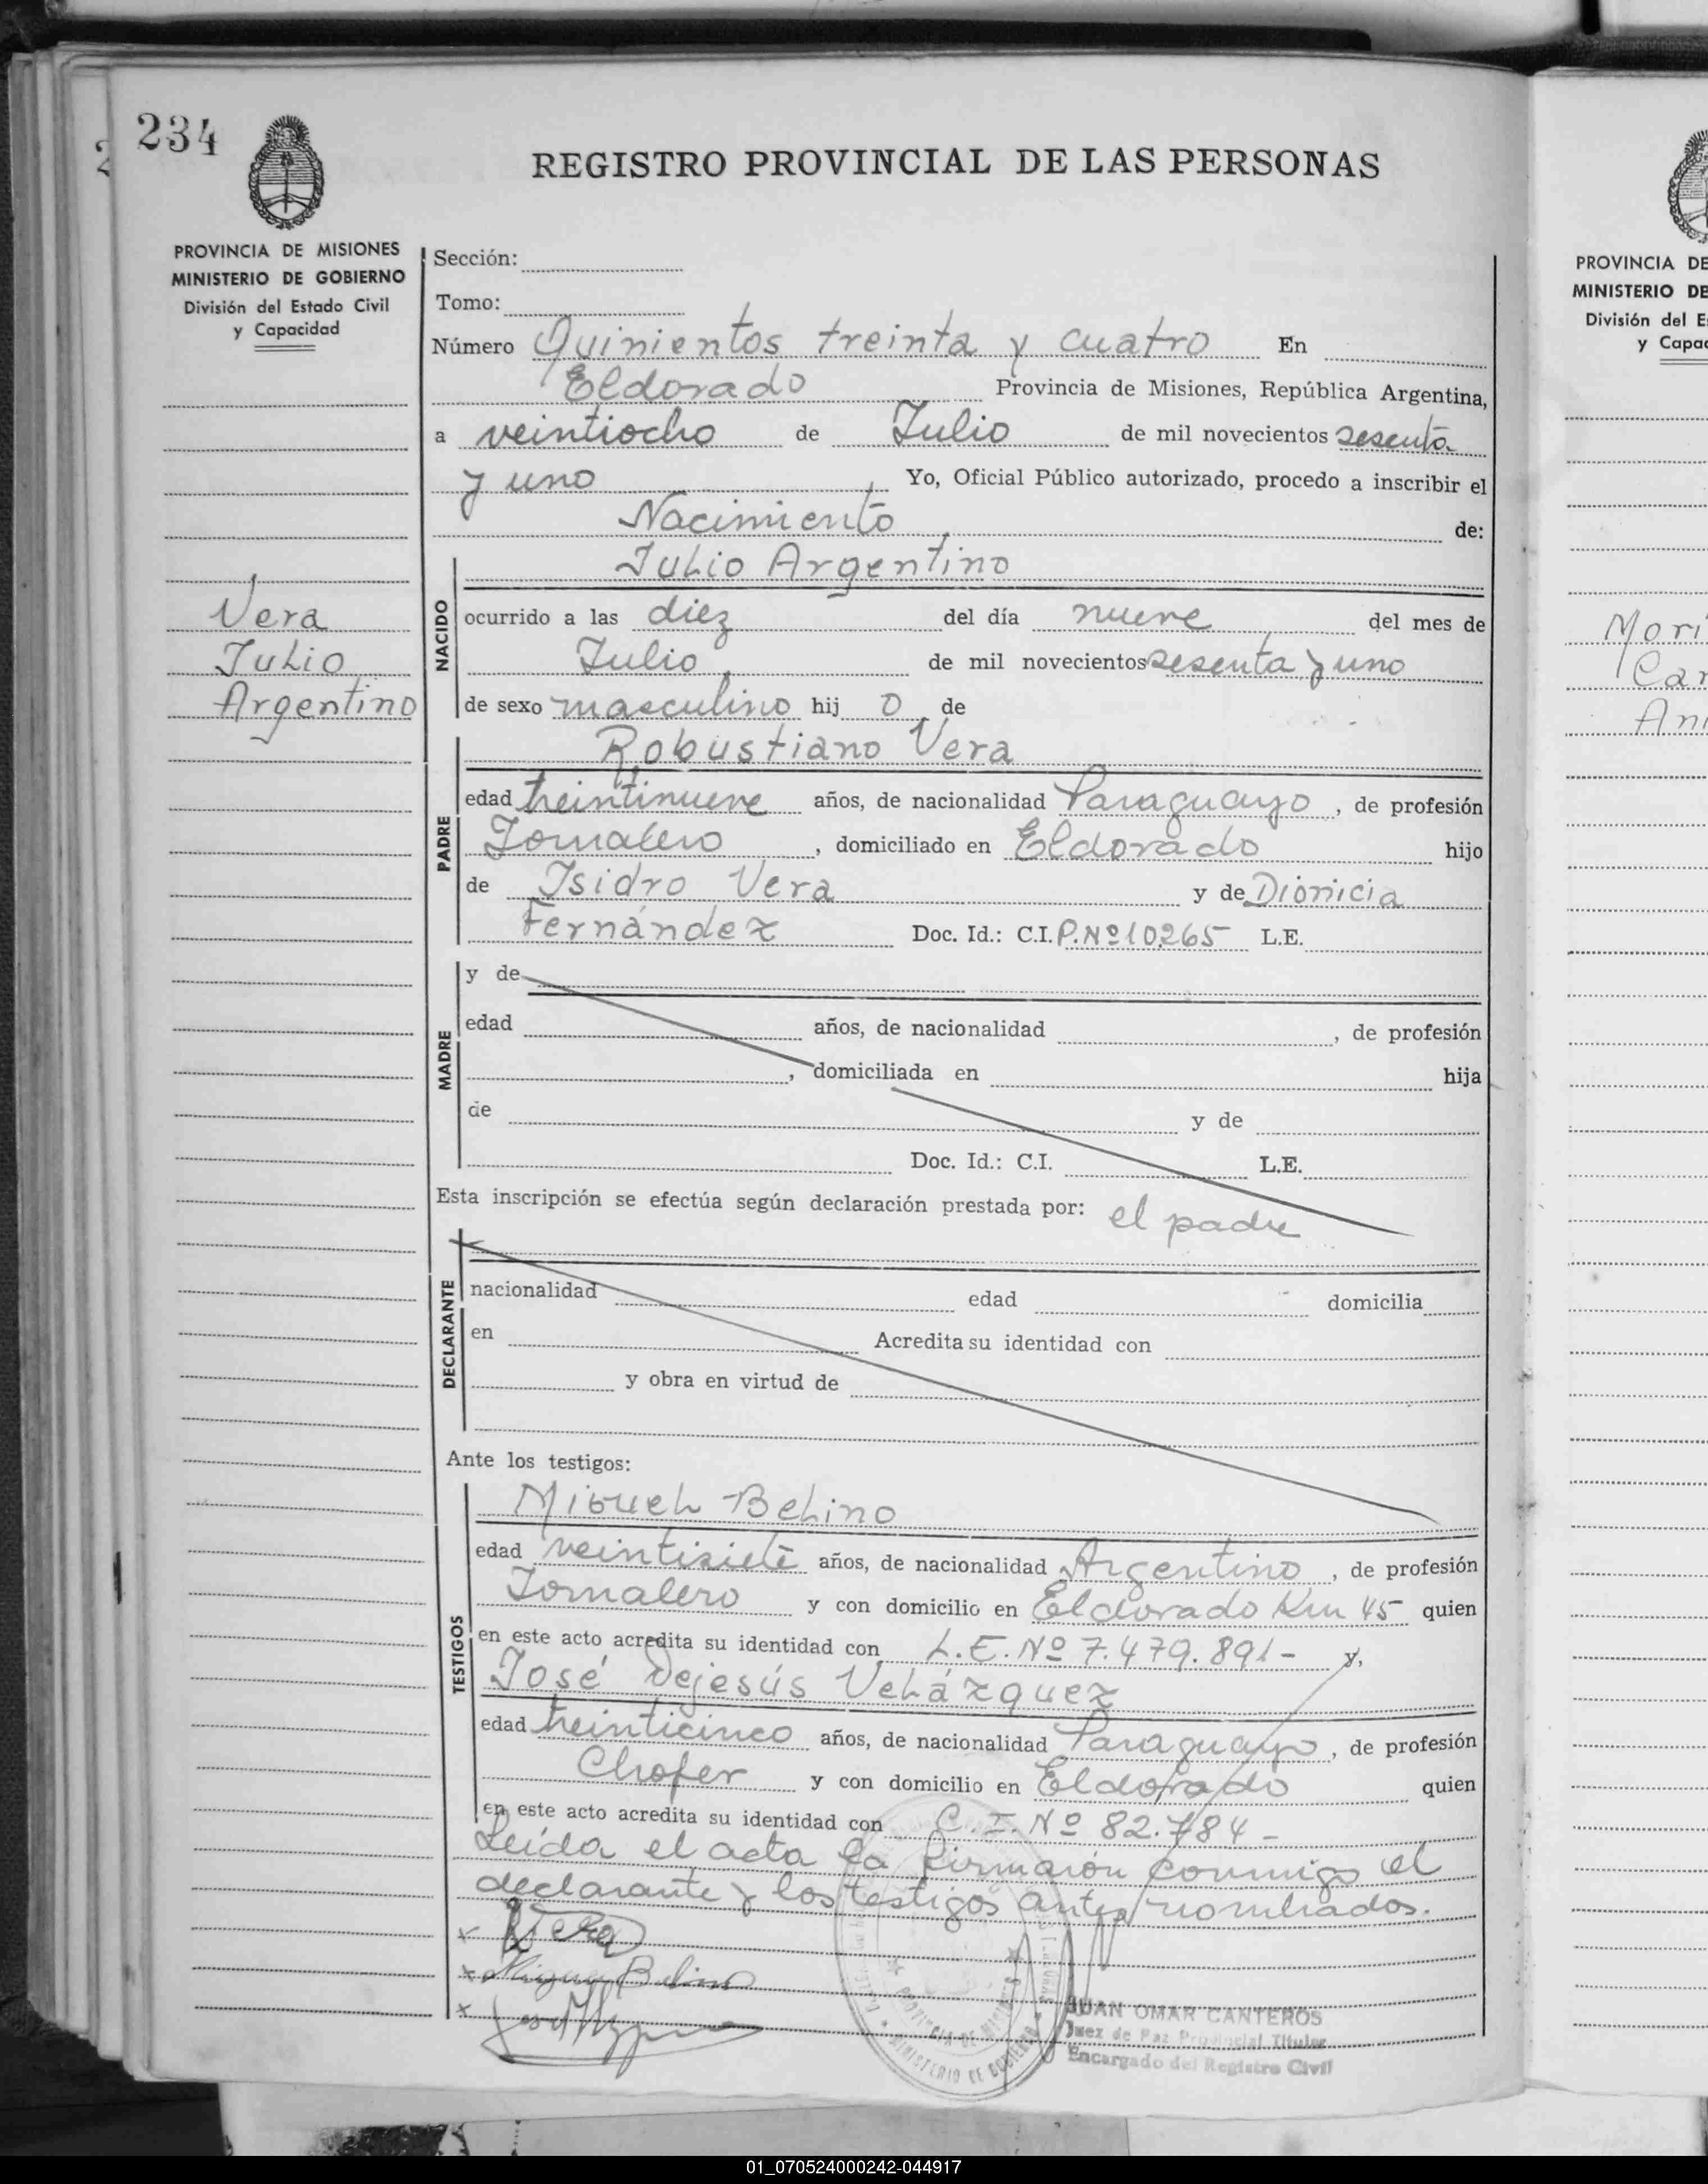 234
REGISTRO PROVINCIAL DE LAS PERSONAS
PROVINCIA DE MISIONES
MINISTERIO DE GOBIERNO
División del Estado Civil
y Capacidad
Sección:
Tomo:
Número Quinientos treinta y cuatro En
Eldorado Provincia de Misiones, República Argentina,
a veintiocho de Julio de mil novecientos sesenta
y uno Yo, Oficial Público autorizado, procedo a inscribir el
Nacimiento de:
Julio Argentino
Vera
Julio
Argentino
NACIDO
ocurrido a las diez del día nueve del mes de
Julio de mil novecientos sesenta y uno
de sexo masculino hij o de
Robustiano Vera
PADRE
edad treintinueve años, de nacionalidad Paraguayo, de profesión
Jornalero, domiciliado en Eldorado hijo
de Isidro Vera y de Dionicia
Fernández Doc. Id.: C.I. P.Nº10265 L.E.
MADRE
y de
edad años, de nacionalidad , de profesión
, domiciliada en hija
de y de
Doc. Id.: C.I. L.E.
Esta inscripción se efectúa según declaración prestada por: el padre
DECLARANTE
nacionalidad edad domicilia
en Acredita su identidad con
y obra en virtud de
Ante los testigos:
TESTIGOS
Miguel Belino
edad veintisiete años, de nacionalidad Argentino, de profesión
Jornalero y con domicilio en Eldorado Km 45 quien
en este acto acredita su identidad con L.E. Nº 7.479.891- y,
José Dejesús Velázquez
edad treinticinco años, de nacionalidad Paraguayo, de profesión
Chofer y con domicilio en Eldorado quien
en este acto acredita su identidad con C.I. Nº 82.784-
Leída el acta la firmaron conmigo el
declarante y los testigos antes nombrados.
x Vera
x Miguel Belino
x
PROVINCIA DE MISIONES
MINISTERIO DE GOBIERNO
JUAN OMAR CANTEROS
Juez de Paz Provincial Titular
Encargado del Registro Civil
PROVINCIA DE
MINISTERIO DE
División del E
y Capac
Mori
Car
An
01_070524000242-044917